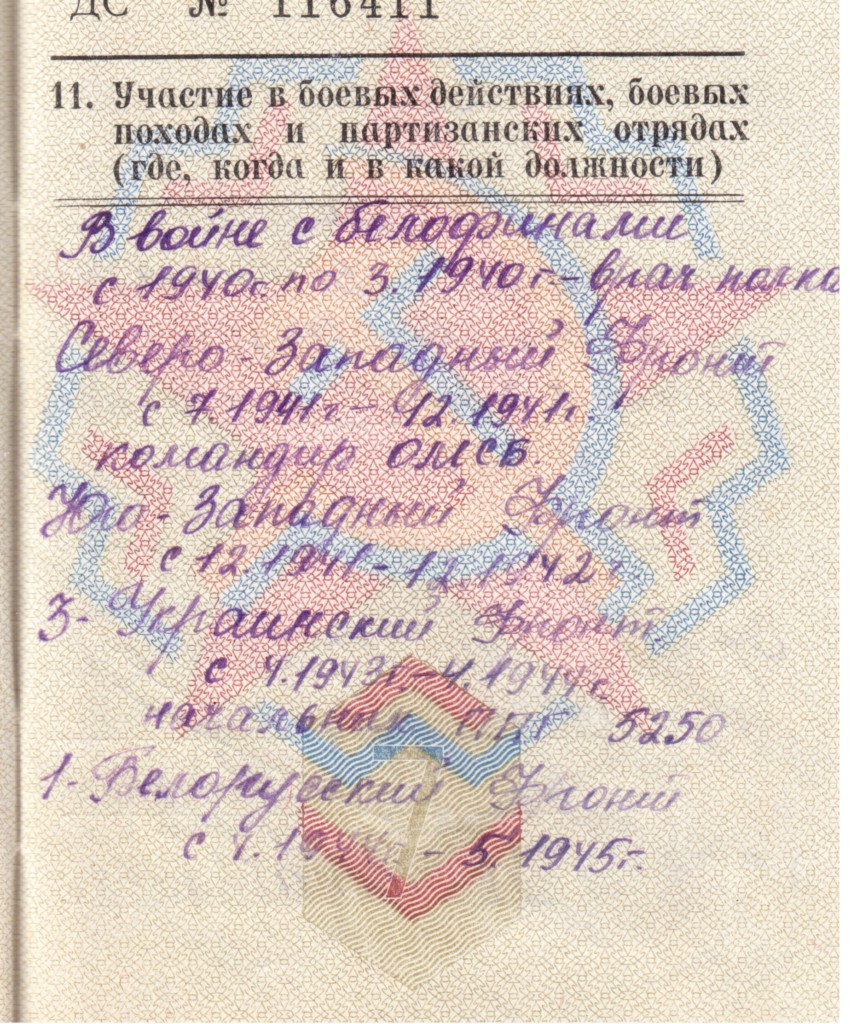 ДС № 116411
11. Участие в боевых действиях, боевых
походах и партизанских отрядах
(где, когда и в какой должности)
В войне с белофинами
с 1940г. по 3. 1940 г. – врач полка
Северо - Западный Фронт
с 7. 1941г. – 12. 1941г.
командир ОМСБ.
Юго - Западный Фронт
с 12 1941 – 12. 1942г.
3 - Украинский Фронт
с 4. 1943г. – 4. 1944г.
начальник 5250
1 - Белорусский Фронт
с 4. 1944г. – 5. 1945г.